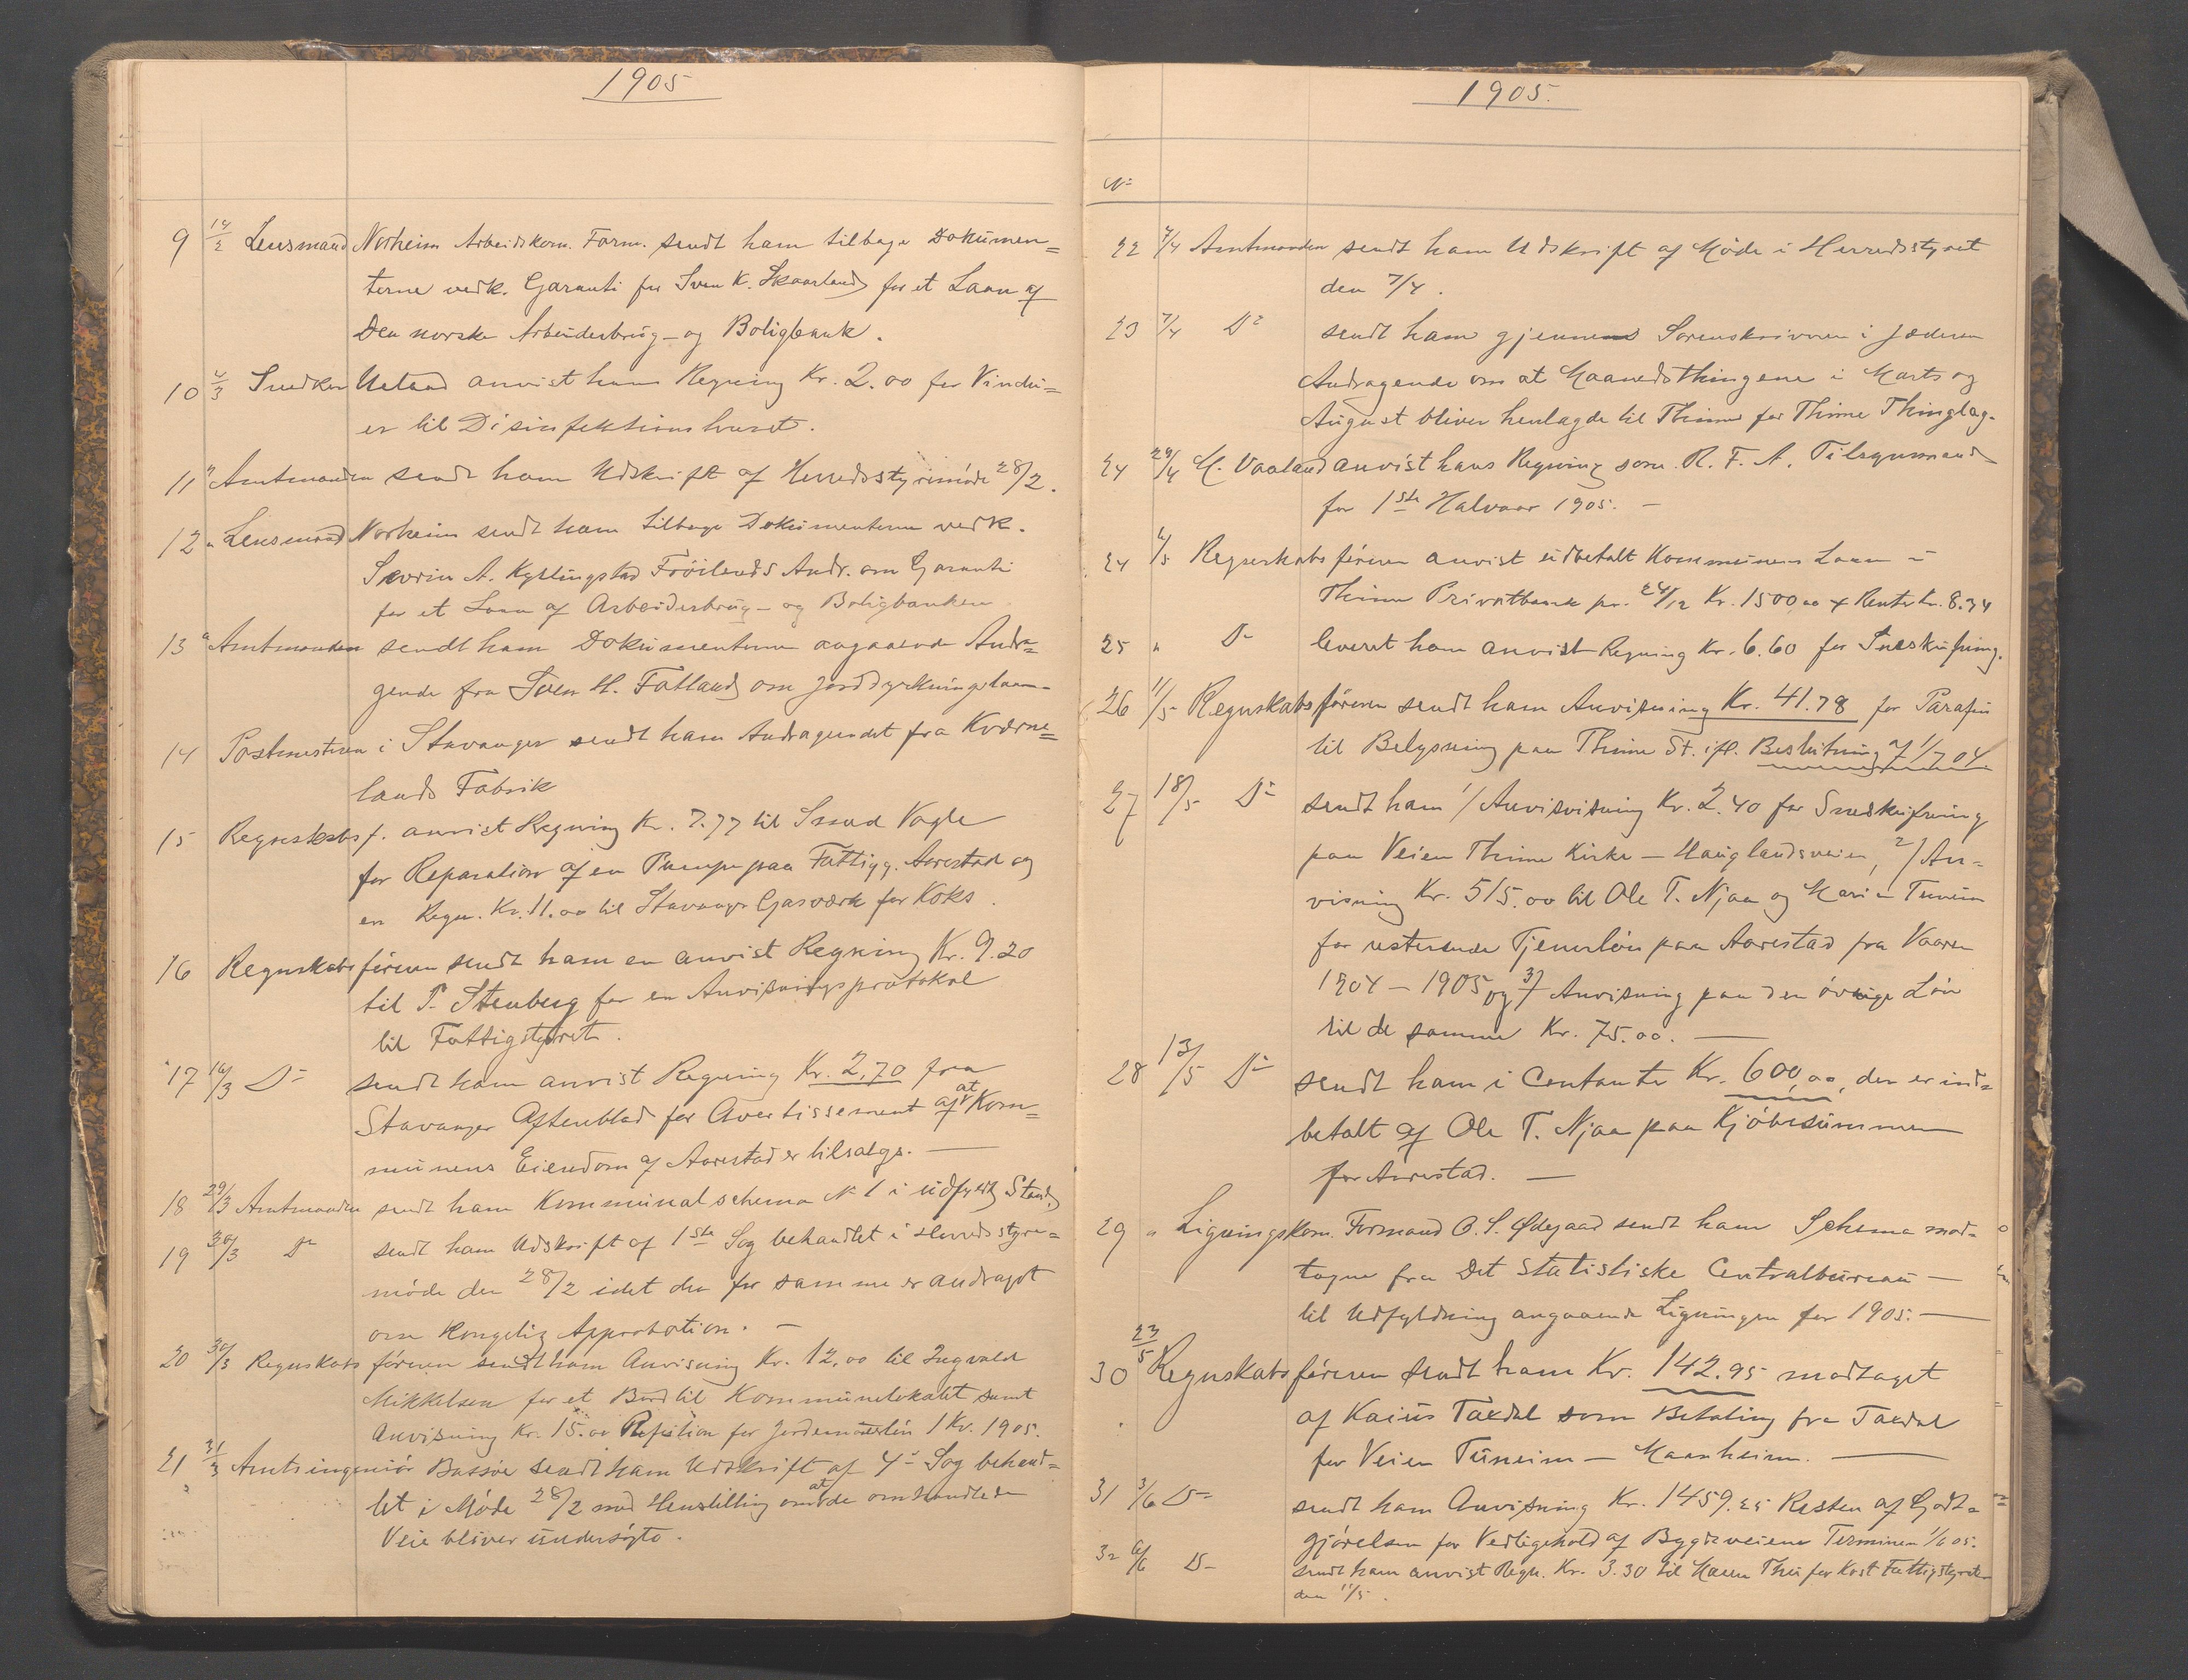 1905
9 14/2 Lensmand Norheim Arbeidskom. Form. sendt ham tilbage Dokumen=
terne vedk. Garanti for Sven K. Skaarland for et Laan af
Den norske Arbeiderbrug- og Boligbank.
10 4/3 Snedker Uelaad anvist hans Regning Kr. 2.00 for Vindu=
er til Disinfektionshuset.
11 " Amtmanden sendt ham Udskrift af Herredsstyremøde 28/2.
12 " Lensmand Norheim sendt ham tilbage Dokumenterne vedk.
Sevrin A. Kyllingstad Frøilands Andr. om Garanti
for et Laan af Arbeiderbrug- og Boligbanken
13 " Amtmanden sendt ham Dokumenterne angaaende Andra=
gende fra Sven H. Fotland om Jorddyrkningslaan-
14 Postmesteren i Stavanger sendt ham Andragendet fra Kværne=
lands Fabrik
15 Regnskabsf. anvist Regning Kr. 7.77 til Vagle
for Reparation af en Pumpe paa Fattigg. Aarestad og
en Regn. Kr. 11.00 til Stavanger Gasværk for Koks.
16 Regnskabsføreren sendt ham en anvist Regning Kr. 9.20
til P. Stenberg for en Anvisningsprotokol
til Fattigstyret.
17 16/3 Do sendt ham anvist Regning Kr. 2,70 fra
Stavanger Aftenblad for Avertissement af at Kom=
munens Eiendom af Aarestad er tilsalgs. —
18 29/3 Amtmanden sendt ham Kommunalschema No 1 i udfyldt Stand
19 30/3 Do sendt ham Udskrift af 1ste Sag behandlet i Herredsstyre=
møde den 28/2 idet der for samme er andraget
om kongelig Approbation. —
20 30/3 Regnskabsføreren sendt ham Anvisning Kr. 12,00 til Ingvald
Mikkelsen for et Bord til Kommunelokalet samt
Anvisning Kr. 15.00 for Jordemoderløn 1 Kv. 1905.
21 31/3 Amtsingeniør Bassøe sendt ham Udskrift af 4de Sag behand=
let i Møde 28/2 med Henstilling om at de omhandlede
Veie bliver undersøgte.
1905.
No
22 7/4 Amtmanden sendt ham Udskrift af Møde i Herredsstyret
den 7/4.
23 7/4 Do sendt ham gjennem Sorenskriveren i Jæderen
Andragende om at Maanedsthingene i Marts og
August bliver henlagde til Thime for Thime Thinglag.
24 29/4 M. Vaaland anvist hans Regning som R. F. A. Tilsynsmand
for 1ste Halvaar 1905. —
24 6/5 Regnskabsføreren anvist udbetalt Kommunens Laan i
Thime Privatbank pr. 24/12 Kr. 1500,00 + Renter kr. 8.34
25 " Do leveret ham anvist Regning Kr. 6.60 for Sneskufning.
26 11/5 Regnskabsføreren sendt ham Anvisning Kr. 41.78 for Parafin
til Belysning paa Thime St. ifl. Beslutning af 1/7 04
27 18/5 Do sendt ham 1/ Anvisvisning Kr. 2.40 for Sneskufning
paa Veien Thime Kirke — Hauglandsveien, 2/ An=
visning Kr. 515.00 til Ole T. Njaa og Maria Tunein
for resterende Tjenerløn paa Aarestad fra Vaaren
1904 — 1905 og 3/ Anvisning paa den øvrige Løn
til de samme Kr. 75.00. —
28 13/5 Do sendt ham i Contanter Kr. 600,00, der er ind=
betalt af Ole T. Njaa paa Kjøbesummen
for Aarestad. —
29 " Ligningskom. Formand O. S. Ødegaard sendt ham Schema mod=
tagne fra Det statistiske Centralbureau —
til Udfyldning angaaende Ligningen for 1905. —
30 23/5 Regnskabsføreren sendt ham Kr. 142.95 modtaget
af Kaius Taxdal som Betaling fra Taxdal
for Veien Tuneim — Maanheim. —
31 3/6 Do sendt ham Anvisning Kr. 1459.25 Resten af Godt=
gjørelsen for Vedligehold af Bygdeveiene Terminen 1/6 05.
32 6/6 Do sendt ham anvist Regn. Kr. 3.30 til Maren Thu for Kost Fattigstyret
den 11/5.